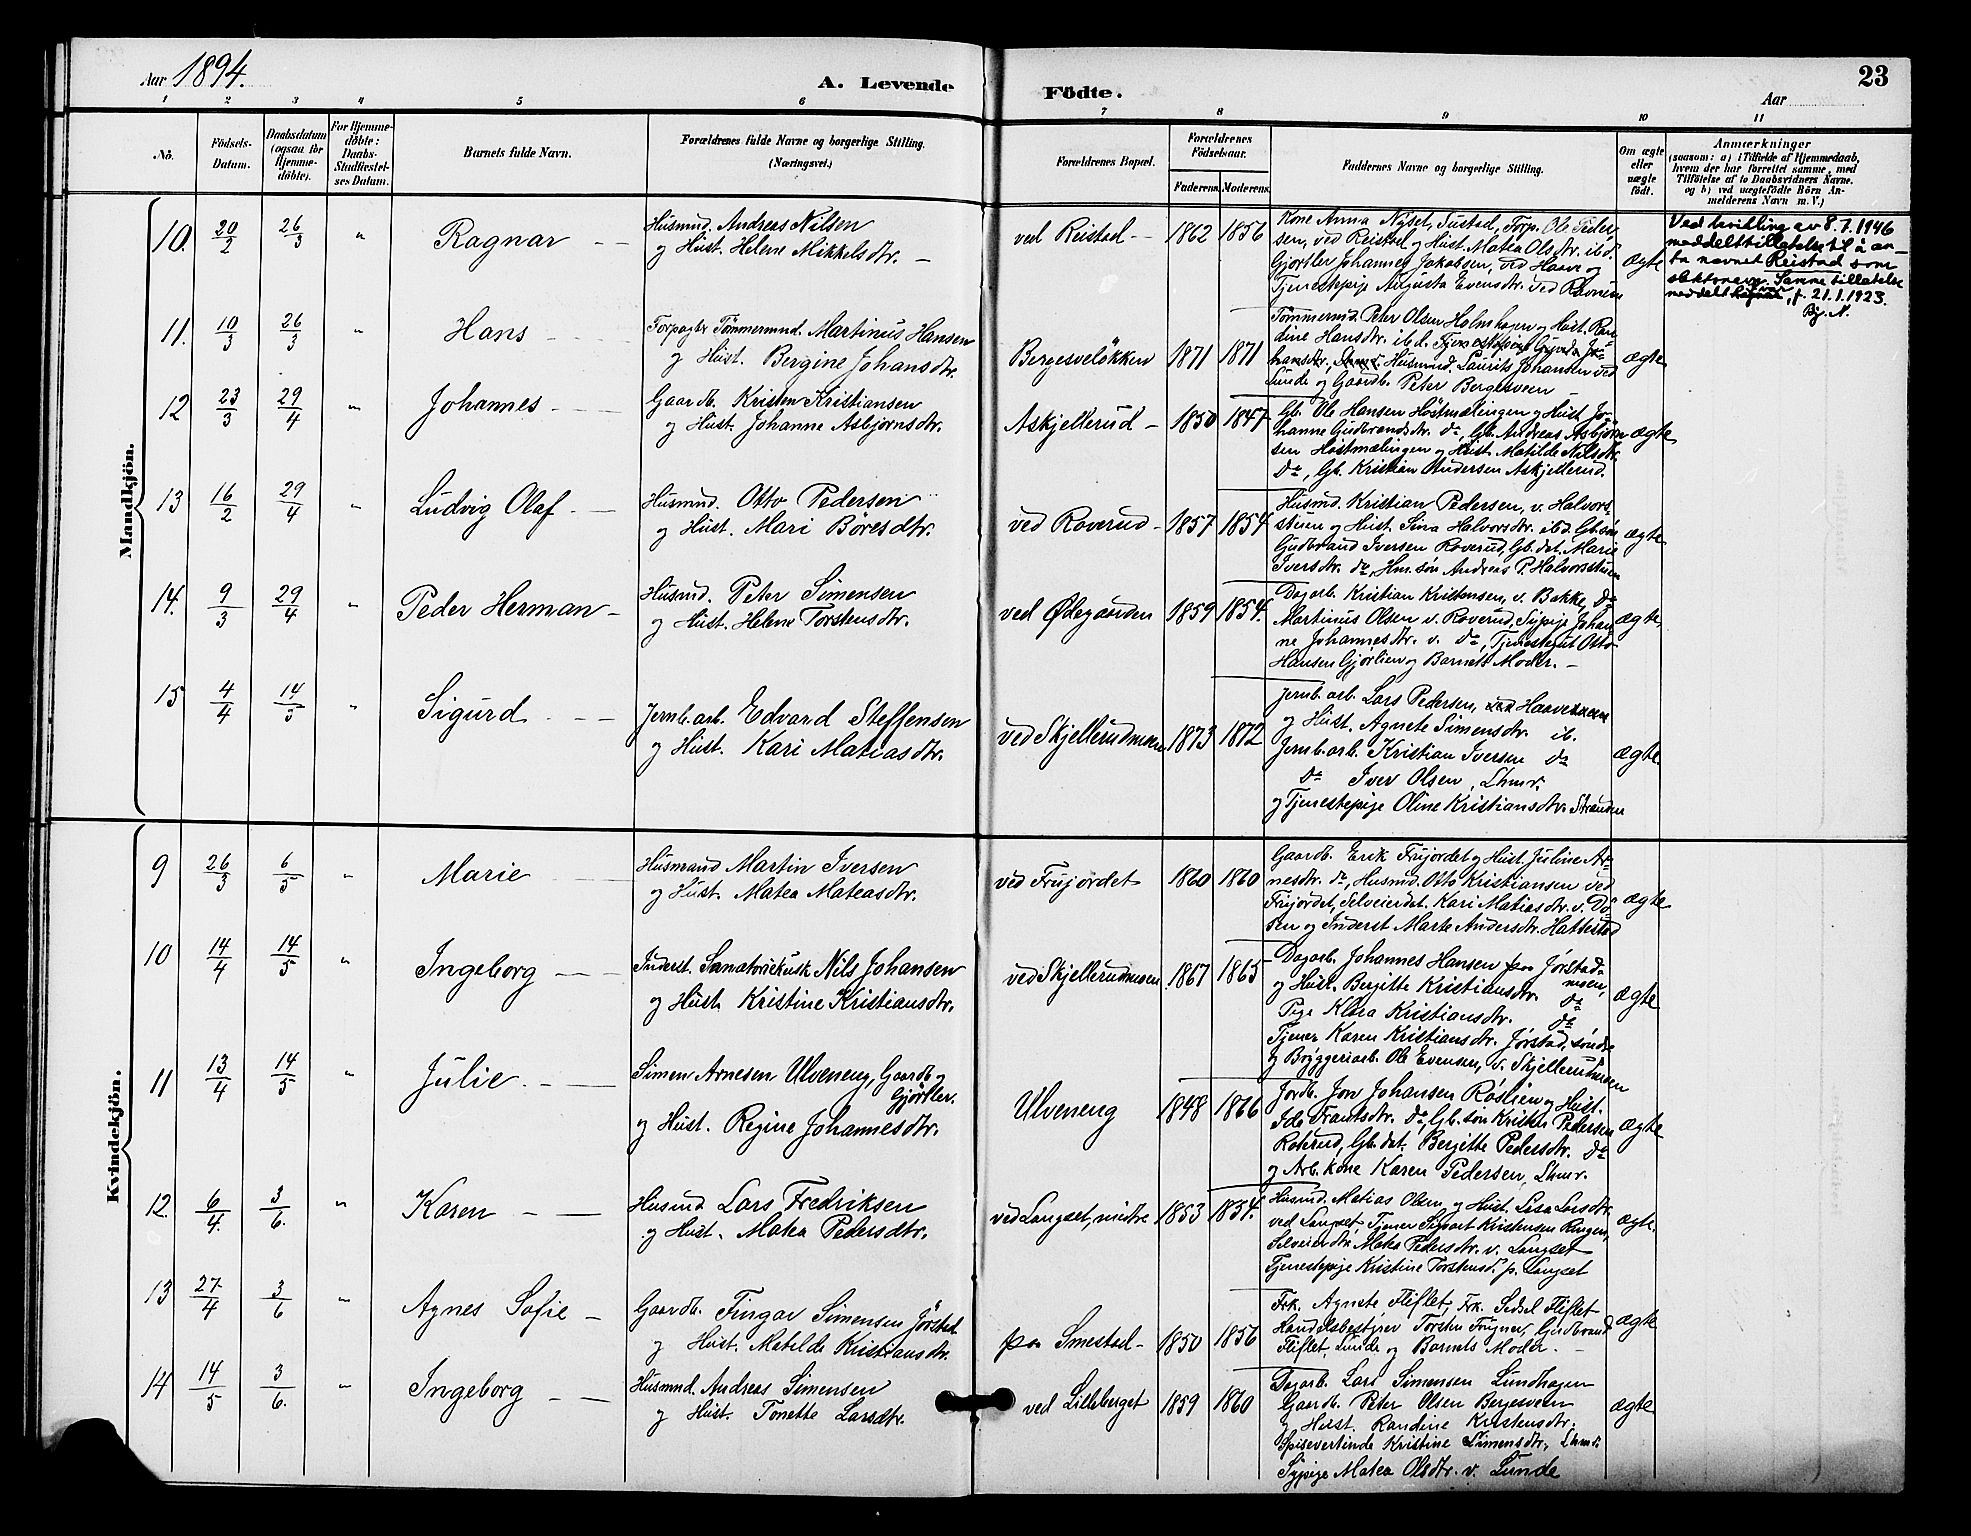 Aar 1894.
A. Levende Födte.
Aar
23
1 2 3 4 5 6 7 8 9 10 11
No.
Födsels-Datum.
Daabsdatum (ogsaa for Hjemmedöbte).
For Hjemmedöbte: Daabs-Stadfæstelses Datum.
Barnets fulde Navn.
Forældrenes fulde Navne og borgerlige Stilling.
(Næringsvei.)
Forældrenes Bopæl.
Forældrenes Födselsaar.
Faderens. Moderens.
Faddernes Navne og borgerlige Stilling.
Om ægte eller uægte födt.
Anmærkninger
(saasom: a) i Tilfælde af Hjemmedaab, hvem der har forrettet samme, med Tilföielse af to Daabsvidners Navne, og b) ved uægtefödte Börn Anmelderens Navn m. V.)
Mandkjön.
10. 20/2 26/3 " Ragnar
Husmnd. Andreas Nilsen
og Hust. Helene Mikkelsdtr.
ved Reistad 1862 1856
Kone Anna Nyset, Sustad, Forp. Ole Peder-
sen, ved Reistad og Hust. Matea Olsdtr. ibd.
Gjørtler Johannes Jakobsen, ved Haave og
Tjenestepige Augusta Evensdtr. ved Ravnen
ægte
Ved bevilling av 8.7.1946
meddelt tillatelse til å an-
ta navnet Reistad som
slektsnavn. Samme tillatelse
meddelt f. 21.1.1923.
Bj. N.
11. 10/3 26/3 " Hans
Forpagter Tømmermnd. Martinus Hansen
og Hust. Bergine Johansdtr.
Bergesveløkken 1871 1871
Tømmermd. Peter Olsen Holmhagen og Hust. Ran-
dine Hansdtr. ibd. Tjenestepige Gunda Jo-
hansdtr., Husmnd. Laurits Johansen ved
Lunde og Gaardb. Peter Bergesveen
ægte
12 23/3 29/4 " Johannes
Gaardb. Kristen Kristiansen
og Hust. Johanne Asbjørnsdtr.
Askjellerud 1850 1847
Gb. Ole Hansen Høstmælingen og Hust. Jo-
hanne Gudbrandsdtr. do, Gb. Andreas Asbjørn-
sen Høstmælingen og Hust. Matilde Nilsdtr.
do, Gb. Kristian Andersen Askjellerud.
ægte
13 16/2 29/4 " Ludvig Olaf
Husmnd. Otto Pedersen
og Hust. Mari Böresdtr.
ved Roverud 1857 1854
Husmd. Kristian Pedersen, v. Halvors-
stuen og Hust. Sina Halvorsdtr. ibd. Gb. søn
Gudbrand Iversen Roverud, Gb. dat. Marie
Iversdtr. do, Hm. søn Andreas P. Halvorsstuen
ægte
14. 9/3 29/4 " Peder Herman
Husmd. Peter Simensen
og Hust. Helene Torstensdtr.
ved Ødegaarden 1859 1854.
Dagarb. Kristian Kristensen, v. Bakke, do
Martinus Olsen v. Roverud, Sypige Johan-
ne Johannesdtr. v. do, Tjenestegut Otto
Hansen Gjørlien og Barnets Moder.
ægte
15 4/4 14/5 " Sigurd
Jernb. arb. Edvard Steffensen
og Hust. Kari Matiasdtr.
ved Skjellerudmoen 1873 1872
Jernb. arb. Lars Pedersen, Haavemoen
og Hust. Agnete Simensdtr. ib.
Jernb. arb. Kristian Iversen do
do Iver Olsen, Lhmr.
og Tjenestepige Oline Kristiansdtr. Stranden
ægte.
Kvindekjön.
9 26/3 6/5 " Marie
Husmand Martin Iversen
og Hust. Matea Mateasdtr.
ved Frujordet 1860 1860
Gaardb. Erik Frujordet og Hust. Juline Ar-
nesdtr. do, Husmd. Otto Kristiansen ved
Frujordet, Selveierdet. Kari Matiasdtr. v. Dø-
sen og Inderst Marte Andersdtr. Hattestad
ægte
10 14/4 14/5 " Ingeborg
Inderst. Sanatoriekusk Nils Johansen
og Hust. Kristine Kristiansdtr.
ved Skjellerudmoen 1867 1865
Dagarb. Johannes Hansen paa Jørstad-
og Hust. Bergitte Kristiansdtr. do moen,
Pige Klara Kristiansdtr. do
Tjener Karen Kristiansdtr. Jørstad, søndre
og Bryggeriarb. Ole Evensen, v. Skjellerudmoen
ægte
11 13/4 14/5 " Julie
Simen Arnesen Ulveneng, Gaardb. og
Gjørtler.
og Hust. Regine Johannesdtr.
Ulveneng 1848 1866
Jordb. Jon Johansen Røslien og Hust.
Ida Frantsdtr. do, Gb. søn Kristian Pedersen
Roterud, Gb. dat. Bergitte Pedersdtr. do
og Arb. kone Karen Pedersen, Lhmr.
ægte
12. 6/4. 3/6. " Karen
Husmd. Lars Fredriksen
og Hust. Matea Pedersdtr.
ved Langset, nedre 1853 1854.
Husmd. Matias Olsen og Hust. Lisa Larsdtr.
ved Langset, Tjener Sigvart Kristensen Ringen,
Selveierdtr. Matea Pedersdtr. v. Langset
Tjenestepige Kristine Torstensd. p. Langset
ægte.
13 27/4 3/6 " Agnes Sofie
Gaardb. Fingar Simensen Jørstad
og Hust. Matilde Kristiansdtr.
paa Smestad 1850 1856
Frk. Agnete Fliflet, Frk. Sidsel Fliflet
Handelsbestyrer Torsten Frugner, Gudbrand
Fliflet, Lunde og Barnets Moder.
ægte
14 14/5 3/6. " Ingeborg
Husmnd. Andreas Simensen
og Hust. Tonette Larsdtr.
ved Lilleberget 1859 1860
Dagarb. Lars Simensen Lundhagen
Gaardb. Peter Olsen Bergesveen
og Hust. Randine Kristensdtr.
Spiseverlinde Kristine Simensdtr, Lhmr.
Sypige Matea Olsdtr. v. Lunde
ægte